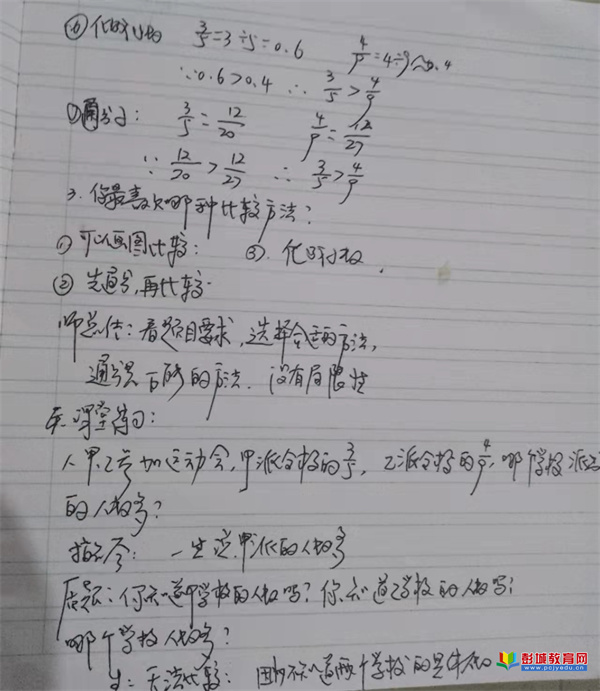 ⑥ 化成小数 3/5=3÷5=0.6 4/9=4÷9≈0.4
∵0.6>0.4 ∴ 3/5>4/9
通分子: 3/5=12/20 4/9=12/27
∵ 12/20>12/27 ∴ 3/5>4/9
3. 你最喜欢哪种比较方法?
① 可以画图比较: ③. 化成小数.
② 先通分,再比较.
师总结: 看题目要求,选择合适的方法,
通分是 的方法. 没有局限性
课堂练习:
1. 甲乙 参加运动会,甲派全校的3/5, 乙派全校的4/9,哪个学校派
的人数多?
一生说甲派的人数多
质疑: 你知道甲学校的人数吗? 你知道乙学校的人数吗?
哪个学校人数多?
生: 无法比较: 因为不知道两个学校的具体人数
彭城教育网
www.pcjyedu.cn